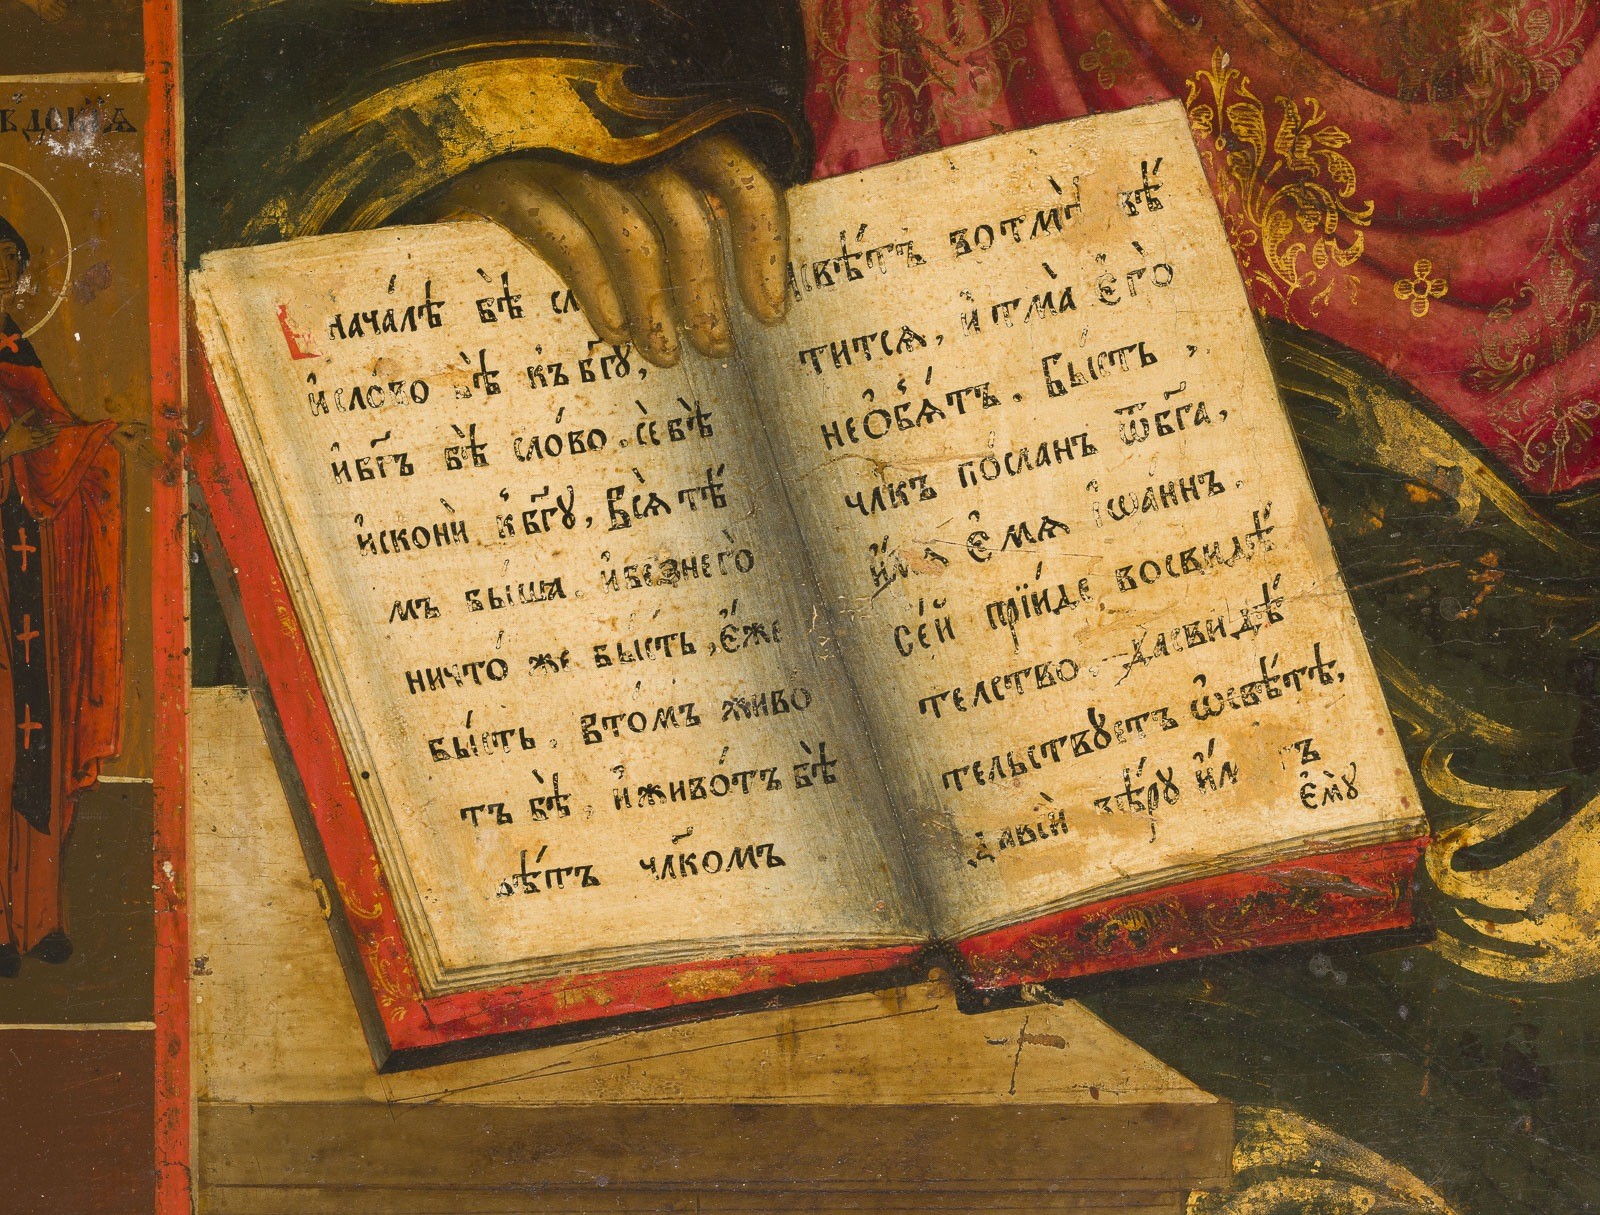 В҆ДОКІѦ
нача́лѣ бѣ̀ сл
и҆ сло́во бѣ̀ к̾ъ бг҃ꙋ,
и҆ бг҃ъ бѣ̀ сло́во. сѐ бѣ̀
и҆скони̇̀ к̾ бг҃ꙋ, Всѧ̀ тѣ́
мъ бы́ша. и҆ без̾ него̀
ничто́ же бы́сть, є҆́же
бы́сть. в то́мъ живо́
тъ бѣ̀, и҆ живо́тъ бѣ̀
вѣ́тъ чл҃комъ
свѣ́тъ во тмѣ̀ свѣ́
титсѧ, и҆ тма̀ є҆го̀
не ѻ҆бѧ́тъ. Бы́сть,
чл҃къ по́сланъ ѿ бг҃а,
и҆́мѧ є҆мѧ і҆ѡа́ннъ.
се́й прїи́де во свидѣ́
телство. да свидѣ́
тельствꙋетъ ѡ҆ свѣ́тѣ,
да вси̇̀ вѣ́рꙋ и҆́м тъ
є҆мꙋ̀